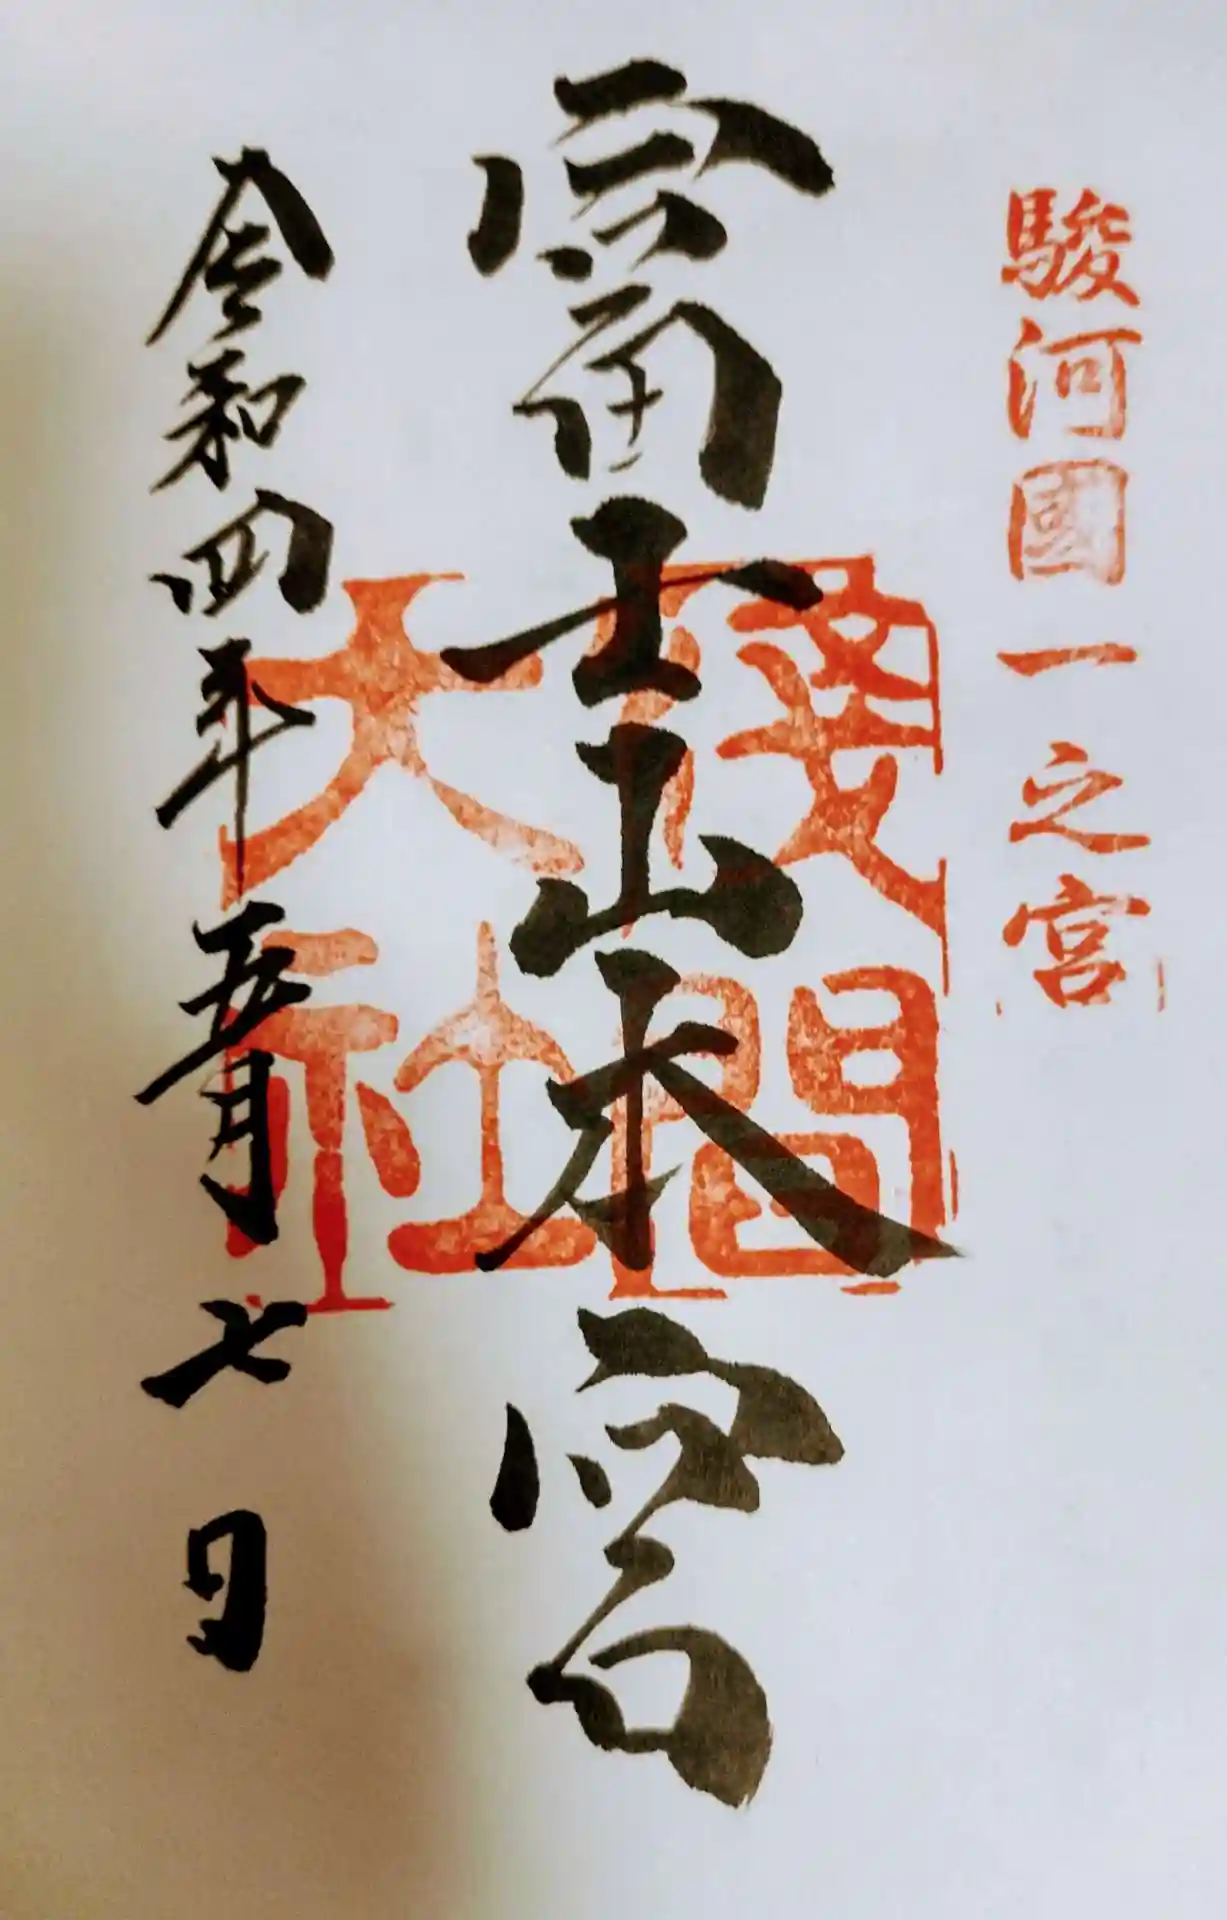 駿河國一之宮
富士山本宮
浅間大社
令和四年五月七日